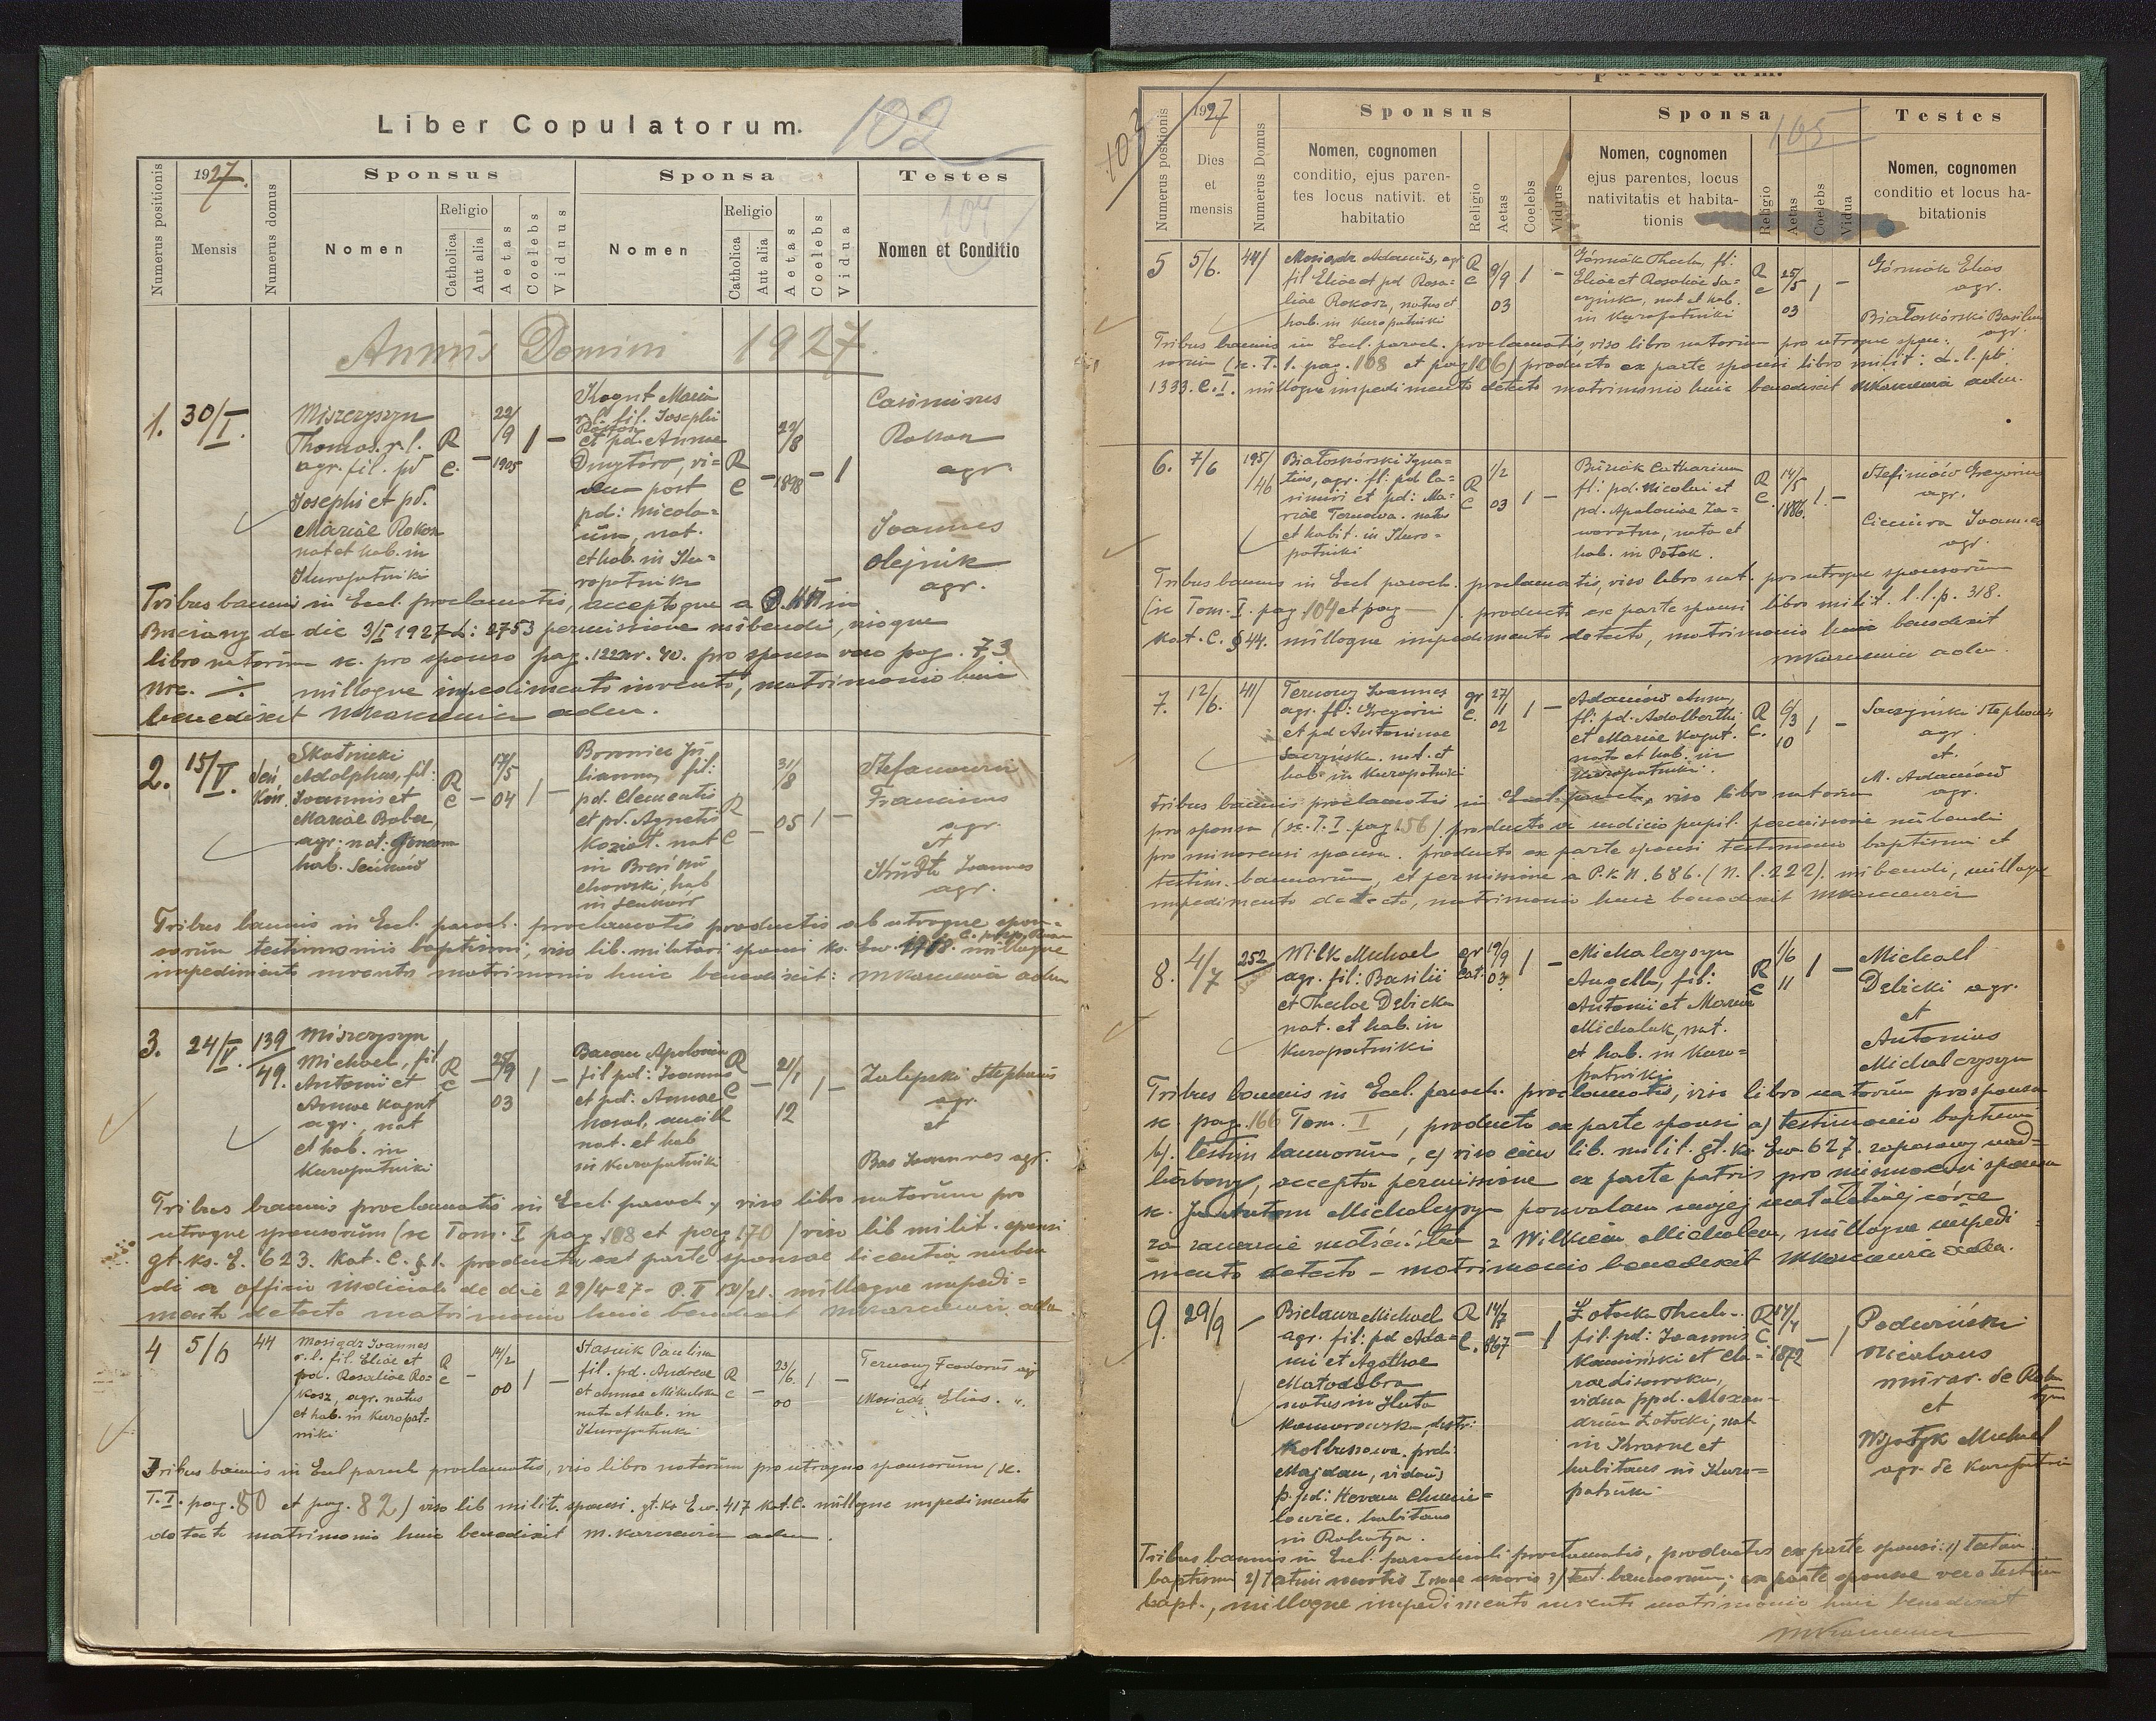 Liber Copulatorum.
102
1927.
Numerus positionis
Mensis
Numerus domus
Sponsus
Nomen
Religio
Catholica
Aut alia
Aetas
Coelebs
Viduus
Sponsa
Nomen
Religio
Catholica
Aut alia
Aetas
Coelebs
Vidua
Testes
104
Nomen et Conditio
Annus Domini 1927.
1. 30/I.
Miszczyszyn
Thomas r. l.
agr. fil. pd
Josephi et pd.
Mariae Rokosz
nat et hab. in
Kuropatniki
R
C. –
22/
9
1905
1 –
Kogut Maria
r. l. fil. Josephi
et pd. Annae
Dmytrów, vi=
dua post
pd: Nicola=
um, nat.
et hab. in Ku=
ropatniki
R
C –
22/
8
1898
– 1
Casimirus
agr.
Joannes
Olejnik
agr.
Tribus bannis in Eccl. proclamatis, acceptoque a
Brzeżany de die 3/I 1927 L: 2753 permissione nubendi, visoque
libro natorum sc. pro sponso pag. 122 nr. 40. pro sponsa vero pag. 73
nre. –/– nulloque impedimento invento, matrimonio huic
benedixit adm.
2. 15/V.
Skotnicki
Adolphus, fil:
Joannis et
Mariae Baber,
agr. nat.
hab. Seńków
R
C –
17/
5
04
1 –
Ju
lianna, fil:
pd. Clementis
et pd. Agnetis
Kozioł. nat
in
hab
in Seńków
R
C –
31/
8
05
1 –
Franciscus
agr.
et
Joannes
agr.
Tribus bannis in Eccl. paroch. proclamatis productis ab utroque spon=
sorum testimoniis baptismi, viso lib. militari sponsi ks. Ew. nulloque
impedimento invento matrimonio huic benedixit: adm
3. 24/V. 139/
49.
Miszczyszyn
Michael, fil
Antonii et
Annae Kogut
agr., nat
et hab. in
Kuropatniki
R
C –
25/
9
03
1 –
Baran Apolonia
fil pd: Joannis
et pd. Annae
nat. et hab
in Kuropatniki
R
C –
21/
1
12
1 –
Zalipski Stephanus
agr.
et
Bas Joannes agr.
Tribus bannis proclamatis in Eccl. paroch. viso libro natorum pro
utroque sponsorum (sc Tom. I pag 108 et pag 170) viso lib milit. sponsi
gt. ks. E. 623. Kat. C. § 1. producta ex parte sponsae licentia nuben
di a officio iudiciali de die 29/4 27 – P. II nulloque impedi=
mento detecto matrimonio huic benedixit adm
4 5/6 44
Mosiądz Joannes
r. l. fil. Eliae et
pd. Rosaliae Ro=
kosz, agr. natus
et hab. in Kuropat=
niki
R
C –
14/
2
00
1 –
Stasiuk Paulina
fil. pd. Andreae
et Annae Mikulska
nata et hab. in
Kuropatniki
R
C –
23/
6.
00
1 –
Ternowy Teodorus agr
et
Mosiądz Elias. ".
Tribus bannis in Eccl paroch proclamatis, viso libro natorum pro utroque sponsorum (sc.
T. I. pag. 80 et pag. 82) viso lib milit. sponsi. gt. ks Ew. 417 kat. C. nulloque impedimento
detecto matrimonio huic benedixit adm.
103
105
1927
Numerus positionis
Dies
et
mensis
Numerus Domus
Sponsus
Nomen, cognomen
conditio, ejus paren-
tes locus nativit. et
habitatio
Religio
Aetas
Coelebs
Viduus
Sponsa
Nomen, cognomen
ejus parentes, locus
nativitatis et habita-
tionis
Religio
Aetas
Coelebs
Vidua
Testes
Nomen, cognomen
conditio et locus ha-
bitationis
5 5/6. 44/
Mosiądz Adamus, agr
fil Eliae et pd Rosa=
liae Rokosz, natus et
hab. in Kuropatniki
R
C
9/9
03
1 –
Górniak Thecla, fil:
Eliae et Rosaliae Sa=
czyńska, nat et hab.
in Kuropatniki
R
C
25/
5
03
1 –
Górniak Elias
agr.
Białoskórski Basilius
agr.
Tribus bannis in Eccl. paroch. proclamatis, viso libro natorum pro utroque spon:
sorum (sc. T. I. pag. 108 et pag 106) producto ex parte sponsi libro milit:
1333. C. I. nulloque impedimento detecto matrimonio huic benedixit adm.
6. 7/6 195/
46
Białoskórski Igna=
tius, agr. fil: pd Ca=
simiri et pd: Ma=
riae Ternowa. natus
et habit. in Kuro=
patniki
R
C
1/2
03
1 –
Buniak Catharina
fil: pd. Nicolai et
pd. Apoloniae Za=
worotna, nata et
hab. in Potok.
R
C.
14/
5
1886.
1. –
Stefinów Gregorius
agr.
Joannes
agr.
Tribus bannis in Eccl paroch. proclamatis, viso libro nat. pro utroque sponsorum
(sc Tom. I. pag 104 et pag —). producto ex parte sponsi libro milit. l. l. p. 318.
Kat. C. § 44. nulloque impedimento detecto, matrimonio huic benedixit
adm.
7. 12/6. 41/
Ternowy Joannes
agr. fil: Gregorii
et pd Antoninae
Saczyńska. nat. et
hab. in Kuropatniki
gr
C.
27/
1
02
1 –
Adamów Anna,
fil: pd. Adalberthi
et Mariae Kogut.
nata et hab. in
Kuropatniki.
R
C.
6/
3
10
1 –
Saczyński Stephanus
agr.
et.
M. Adamów
agr.
Tribus bannis proclamatis in Eccl. paroch, viso libro natorum
pro sponsa (sc. T. I. pag. 156) producto a iudicio pupil. permissione nubendi
pro minorenni sponsa. producto ex parte sponsi testimonio baptismi et
testim. bannorum, et permissione a P. K. N. 686. (N. l. 222). nubendi, nulloque
impedimento detecto, matrimonio huic benedixit
8. 4/7 252
Wilk Michael
agr. fil: Basilii
et Theclae Debicka
nat. et hab. in
Kuropatniki
gr
cat.
19/
9
03.
1 –
Michalczyszyn
Angella, fil:
Antonii et Mariae
Michaluk, nat.
et hab. in Kuro=
patniki
R
C
1/6
11
1 –
Michael
Debicki agr.
et
Antonius
Michalczyszyn
Tribus bannis in Eccl. paroch. proclamatis, viso libro natorum pro sponsa
sc. pag. 166 Tom. I, producto ex parte sponsi a) testimonio baptismi
b). testim bannorum, c) viso lib. milit. gt. ks Ew 627. zapasowy nad=
liczbowy, accepta permissione ex parte patris pro minorenni sponsa
sc. Ja Antoni Michalczyszyn pozwalam mojej małoletniej córce
na zawarcie małżeństwa z Wilkiem Michałem, nulloque impedi=
mento detecto – matrimonio benedixit adm.
9. 29/9 –
Bielawa Michael
agr. fil: pd Ada=
mi et Agathae
Matodobra
natus in Huta
Komorowska, distr:
Kolbuszowa. prch:
Majdan, viduus
p. pd:
habitans
in Rohatyn.
R
C.
14/7
867
– 1
Żołocka Thecla.
fil: pd: Joannis
Kamiński et Cla=
rae
vidua ppd. Alexan=
drum Żołocki, nat
in Krasne et
habitans in Kuro=
patniki.
R
C
17/
4
1872
– 1
Podwiński
Nicolaus
murar. de Roha
tyn
et
Michael
agr. de Kuropatniki
Tribus bannis in Eccl. parochiali proclamatis, productis ex parte sponsi: 1) testim.
baptismi 2) testim mortis Imae uxoris 3) test. bannorum; ex parte sponsae vero testim
bapt., nulloque impedimento invento matrimonio huic benedixit